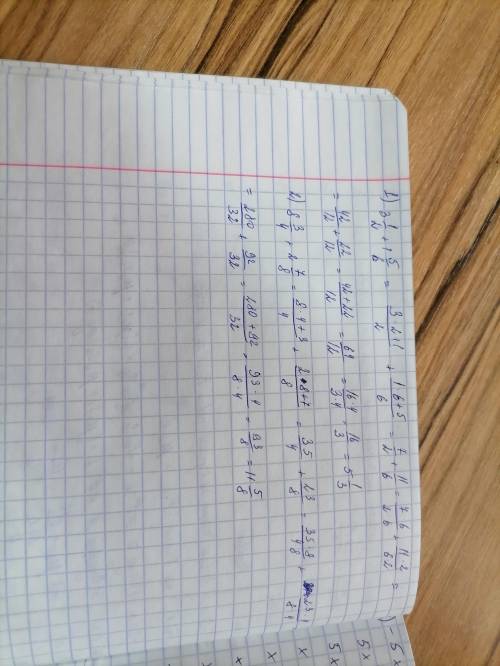 1) 3 1/2 + 1 5/6 = (3·2+1)/2 + (1·6+5)/6 = 7/2 + 11/6 = (7·6)/(2·6) + (11·2)/(6·2) =
= 42/12 + 22/12 = (42+22)/12 = 64/12 = (16·4)/(3·4) = 16/3 = 5 1/3
2) 8 3/4 + 2 7/8 = (8·4+3)/4 + (2·8+7)/8 = 35/4 + 23/8 = (35·8)/(4·8) + (23·4)/(8·4)
= 280/32 + 92/32 = (280+92)/32 = (93·4)/(8·4) = 93/8 = 11 5/8
) - 5x
5x
5x
x
x